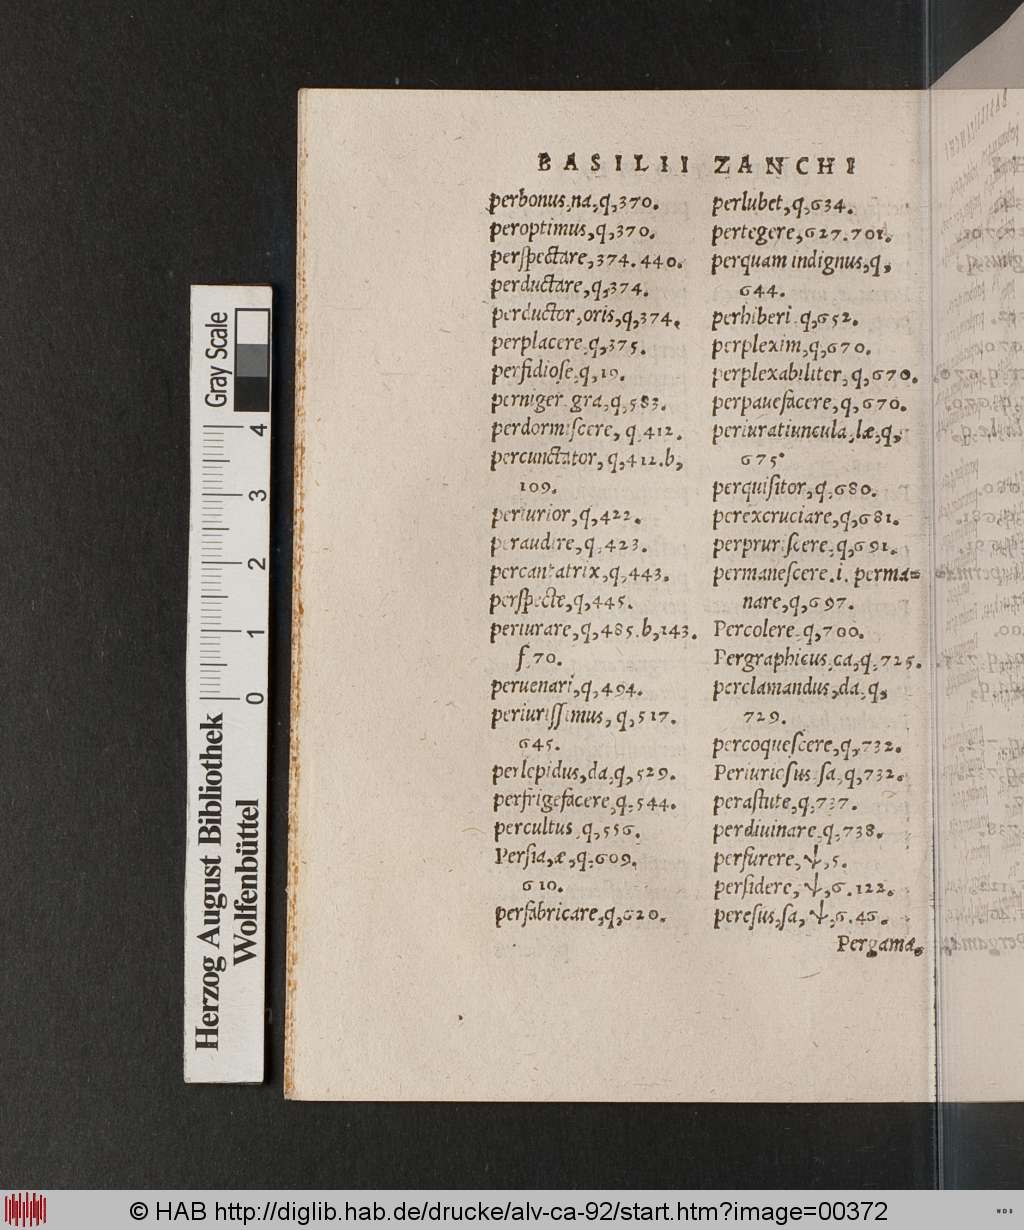 BASILII ZANCHI
perbonus,na,q,370.
peroptimus,q,370.
perſpectare,374.440.
perductare,q,374.
perductor,oris,q,374.
perplacere,q,375.
perfidioſe,q,19.
perniger,gra,q,583.
perdormiſcere, q,412.
percunctator, q,412.b,
109.
periurior,q,422.
peraudire,q,423.
percantatrix,q,443.
perſpecte,q,445.
periurare,q,485.b,143.
f,70.
peruenari,q,494.
periuriſſimus, q,517.
645.
perlepidus,da,q,529.
perfrigefacere,q,544.
percultus,q,556.
Perſia,æ,q,609.
610.
perfabricare,q,620.
perlubet,q,634.
pertegere,627.701.
perquam indignus,q,
644.
perhiberi,q,652.
perplexim,q,670.
perplexabiliter,q,670.
perpauefacere,q,670.
periuratiuncula,læ,q,
675.
perquiſitor,q,680.
perexcruciare,q,681.
perpruriſcere,q,691.
permaneſcere.i. perma=
nare,q,697.
Percolere,q,700.
Pergraphicus,ca,q,725.
perclamandus,da,q,
729.
percoqueſcere,q,732.
Periurioſus,ſa,q,732.
peraſtute,q,737.
perdiuinare,q,738.
perfurere,ↆ,5.
perſidere,ↆ,6.122.
pereſus,ſa,ↆ,6.46.
Pergamæ,
Gray Scale
0 1 2 3 4
Herzog August Bibliothek
Wolfenbüttel
© HAB http://diglib.hab.de/drucke/alv-ca-92/start.htm?image=00372